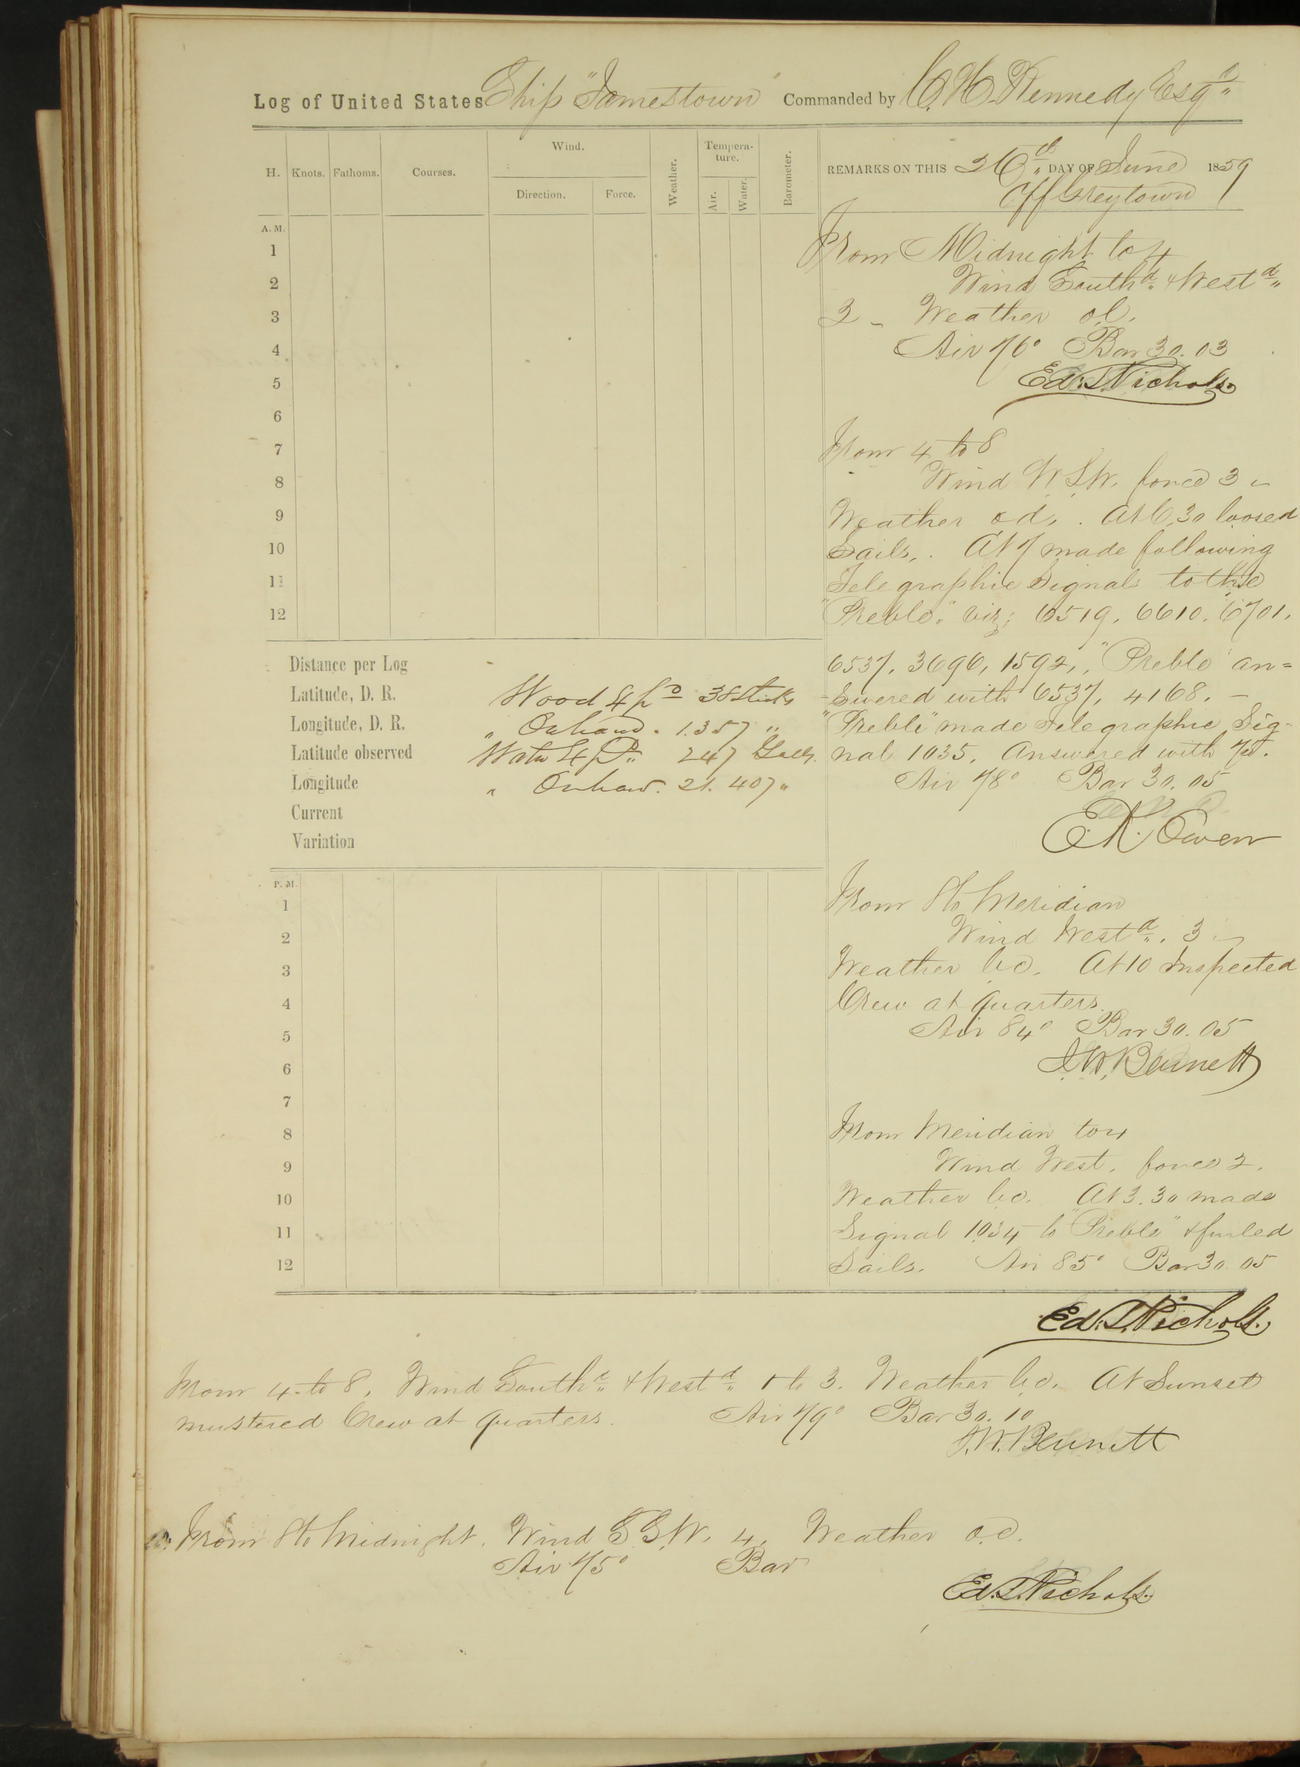 Log of United States Ship "Jamestown" Commanded by C. H. Kennedy Esqr.
H. Knots. Fathoms. Courses. Wind. Direction. Force. Weather. Tempera-ture. Air. Water. Barometer.
REMARKS ON THIS 26th DAY OF June 1859
Off Greytown
A. M.
1
2
3
4
5
6
7
8
9
10
11
12
From Midnight to 4
Wind Southd. & Westd.
2 - Weather o.c.
Air 76° Bar 30.03
Ed. T. Nichols.
From 4 to 8
Wind W.S.W. force 3
Weather o.c. At 6.30 loosed
Sails. At 7 made following
Telegraphic Signals to the
"Preble," viz; 6519, 6610, 6701,
6537, 3696, 1592, "Preble" an=
swered with 6537, 4168. -
"Preble" made Telegraphic Sig-
nal 1035, Answered with
Air 78° Bar 30.05
E. K. Owen
Distance per Log
Latitude, D. R.
Longitude, D. R.
Latitude observed
Longitude
Current
Variation
Wood 38 sticks
" On hand. 1.357 "
Water 247 Galls.
" On hand. 21.407 "
P. M.
1
2
3
4
5
6
7
8
9
10
11
12
From 8 to Meridian
Wind Westd. 3
Weather b.c. At 10 Inspected
Crew at quarters.
Air 84° Bar 30.05
J. W. Bennett
From Meridian to 4
Wind West. force 2.
Weather b.c. At 3.30 made
Signal 1034 to "Preble" & furled
Sails. Air 85° Bar 30.05
Ed. T. Nichols.
From 4 to 8, Wind Southd. & Westd. 1 to 3. Weather b.c. At Sunset
mustered Crew at quarters. Air 79° Bar 30.10
J. W. Bennett
From 8 to Midnight. Wind S.S.W. 4, Weather o.c.
Air 75° Bar
Ed. T. Nichols.